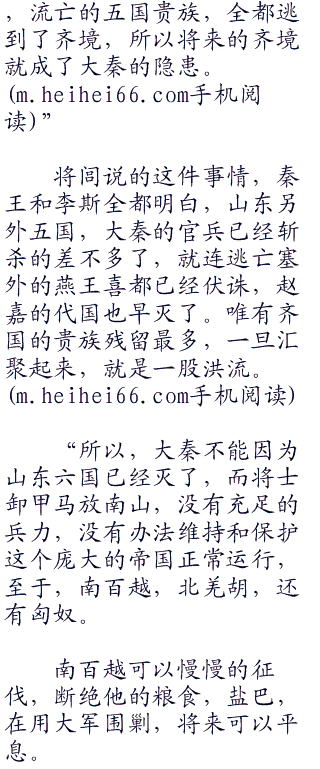 ，流亡的五国贵族，全都逃
到了齐境，所以将来的齐境
就成了大秦的隐患。
(m.heihei66.com手机阅
读)”
将闾说的这件事情，秦
王和李斯全都明白，山东另
外五国，大秦的官兵已经斩
杀的差不多了，就连逃亡塞
外的燕王喜都已经伏诛，赵
嘉的代国也早灭了。唯有齐
国的贵族残留最多，一旦汇
聚起来，就是一股洪流。
(m.heihei66.com手机阅读)
“所以，大秦不能因为
山东六国已经灭了，而将士
卸甲马放南山，没有充足的
兵力，没有办法维持和保护
这个庞大的帝国正常运行，
至于，南百越，北羌胡，还
有匈奴。
南百越可以慢慢的征
伐，断绝他的粮食，盐巴，
在用大军围剿，将来可以平
息。